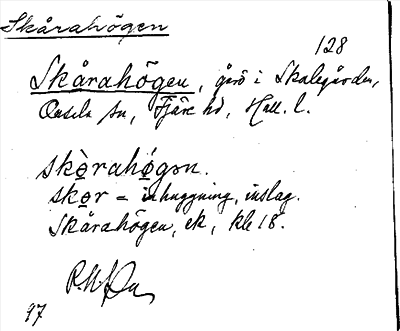 Skårahögen
128
Skårahögen, gård i Skalegården,
Onsala sn, Fjäre hd, Hall. l.
skòrahǿgən.
skor = inhuggning, inslag.
Skårahögen, ek, kle 18.
97